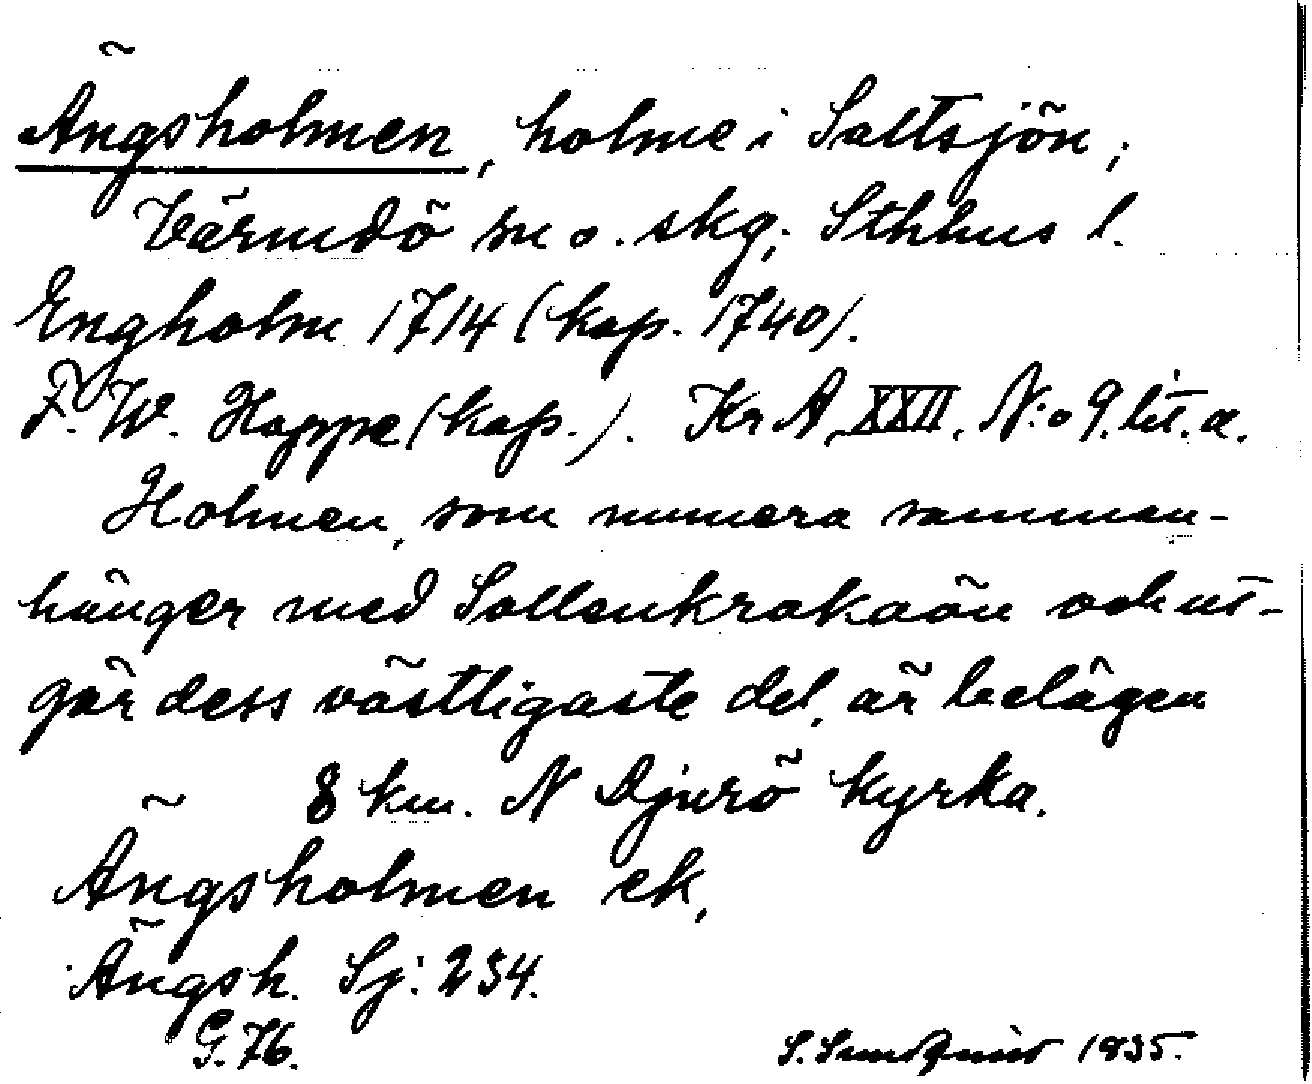 Ängsholmen, holme i Saltsjön,
Värmdö sn o. skg; Sthlms l.
Engholm 1714 (kop. 1740).
F. W. Hoppe (kop.). Kr A, XXII, N:o 9. lit. a.
Holmen, som numera samman-
hänger med Sollenkrokaön och ut-
gör dess västligaste del, är belägen
8 km. N Djurö kyrka.
Ängsholmen ek,
Ängsh. Sj: 234.
G. 76.
S. Sundquist 1935.